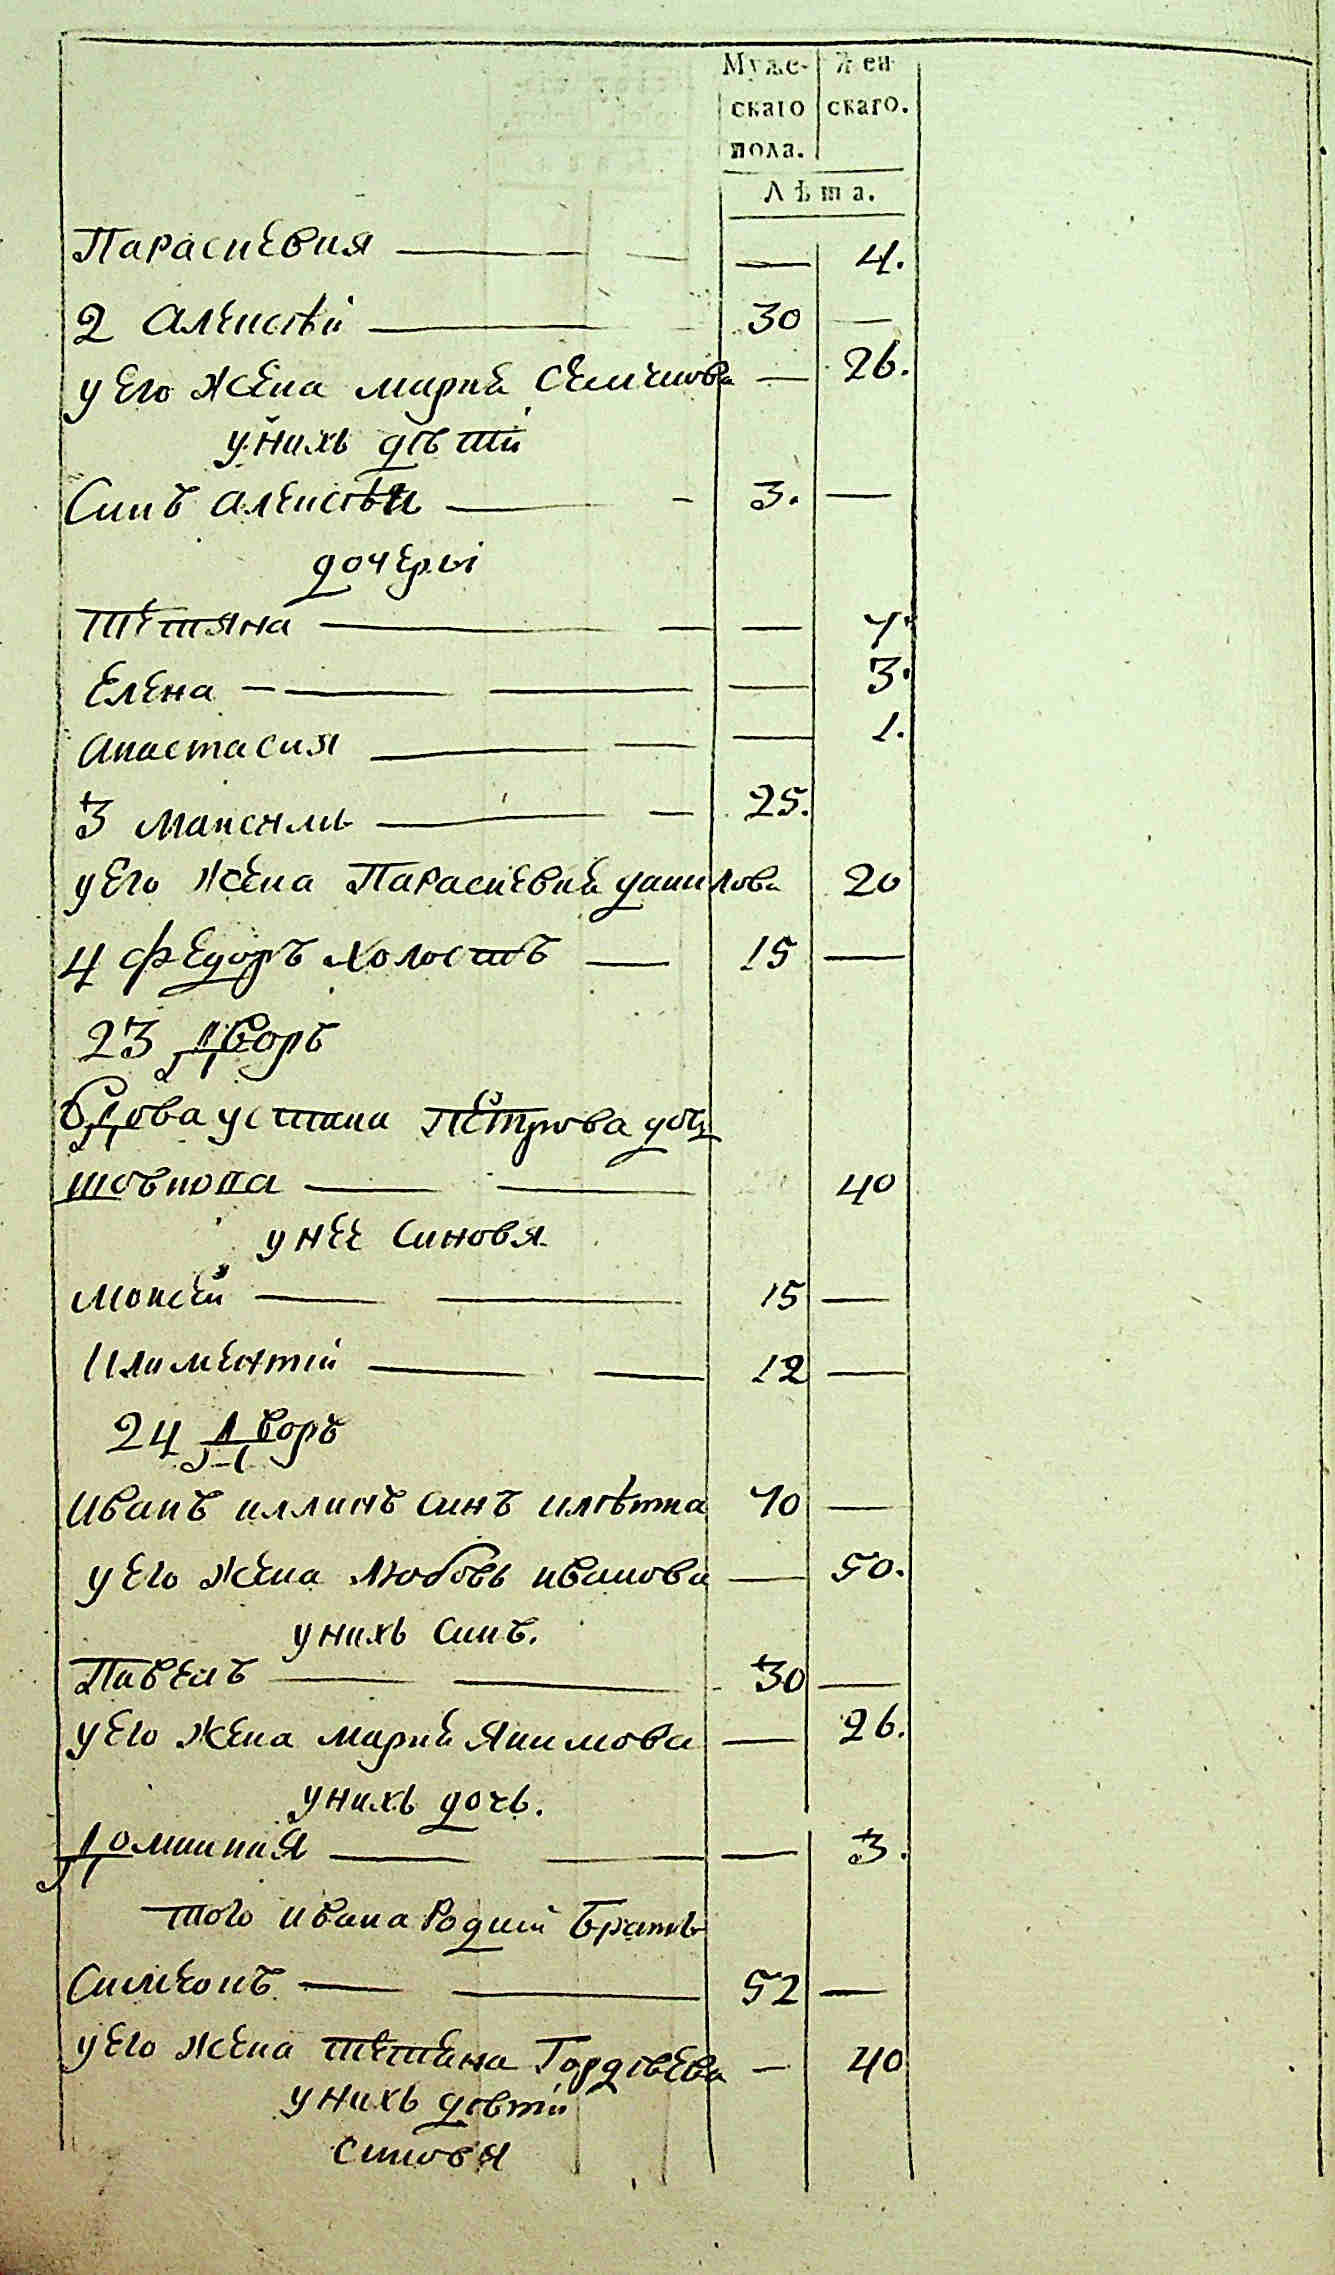 Муже- Жен
скаго скаго.
пола.
Лѣта.
Параскевия — — 4.
2 Алексѣй — 30 —
у его жена мария Семенова — 26.
у нихъ дѣти
Синъ алексѣй — 3. —
дочеры
Тетяна — — 7.
Елена — — 3.
Анастасия — — 1.
3 Максимъ — 25.
у его жена Параскевия данилова 20
4 федоръ холостъ — 15 —
23 Дворъ
Вдова устина Петрова доц
40
у нее Синовя
Мокей — 15 —
Климентий — 12 —
24 Дворъ
Иванъ иллинъ синъ клѣтка 70 —
у его жена Любовь иванова — 50.
у нихъ синъ.
Павелъ — 30 —
у его жена мария Якимова — 26.
у нихъ дочь.
Домникия — — 3.
того ивана Родний братъ
Симеонъ — 52 —
у его жена тетяна Гордѣева — 40
у нихъ дѣти
синовя